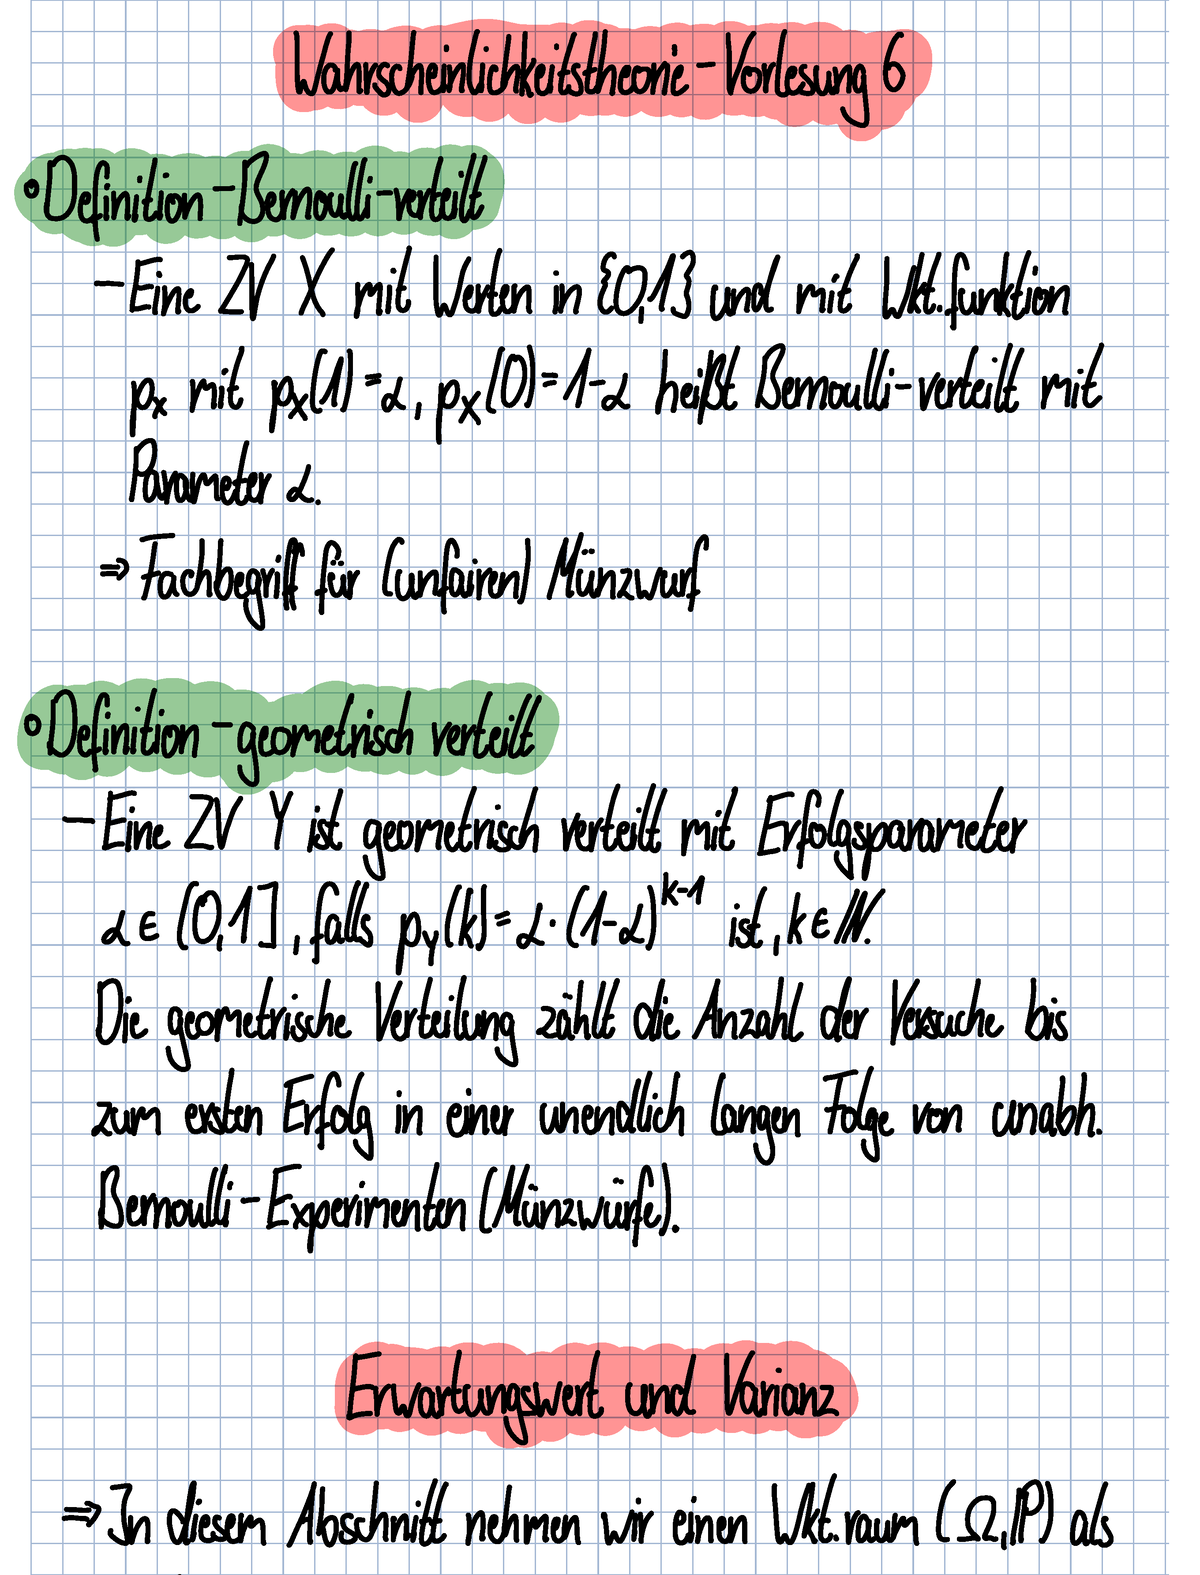 Wahrscheinlichkeitstheorie - Vorlesung 6
° Definition - Bernoulli-verteilt
- Eine ZV X mit Werten in {0,1} und mit Wkt.funktion
pₓ mit pₓ(1) = α, pₓ(0) = 1-α heißt Bernoulli-verteilt mit
Parameter α.
⇒ Fachbegriff für (unfairen) Münzwurf
° Definition - geometrisch verteilt
- Eine ZV Y ist geometrisch verteilt mit Erfolgsparameter
α ∈ (0,1], falls p_Y(k) = α · (1-α)^{k-1} ist, k ∈ ℕ.
Die geometrische Verteilung zählt die Anzahl der Versuche bis
zum ersten Erfolg in einer unendlich langen Folge von unabh.
Bernoulli-Experimenten (Münzwürfe).
Erwartungswert und Varianz
⇒ In diesem Abschnitt nehmen wir einen Wkt.raum (Ω, ℙ) als